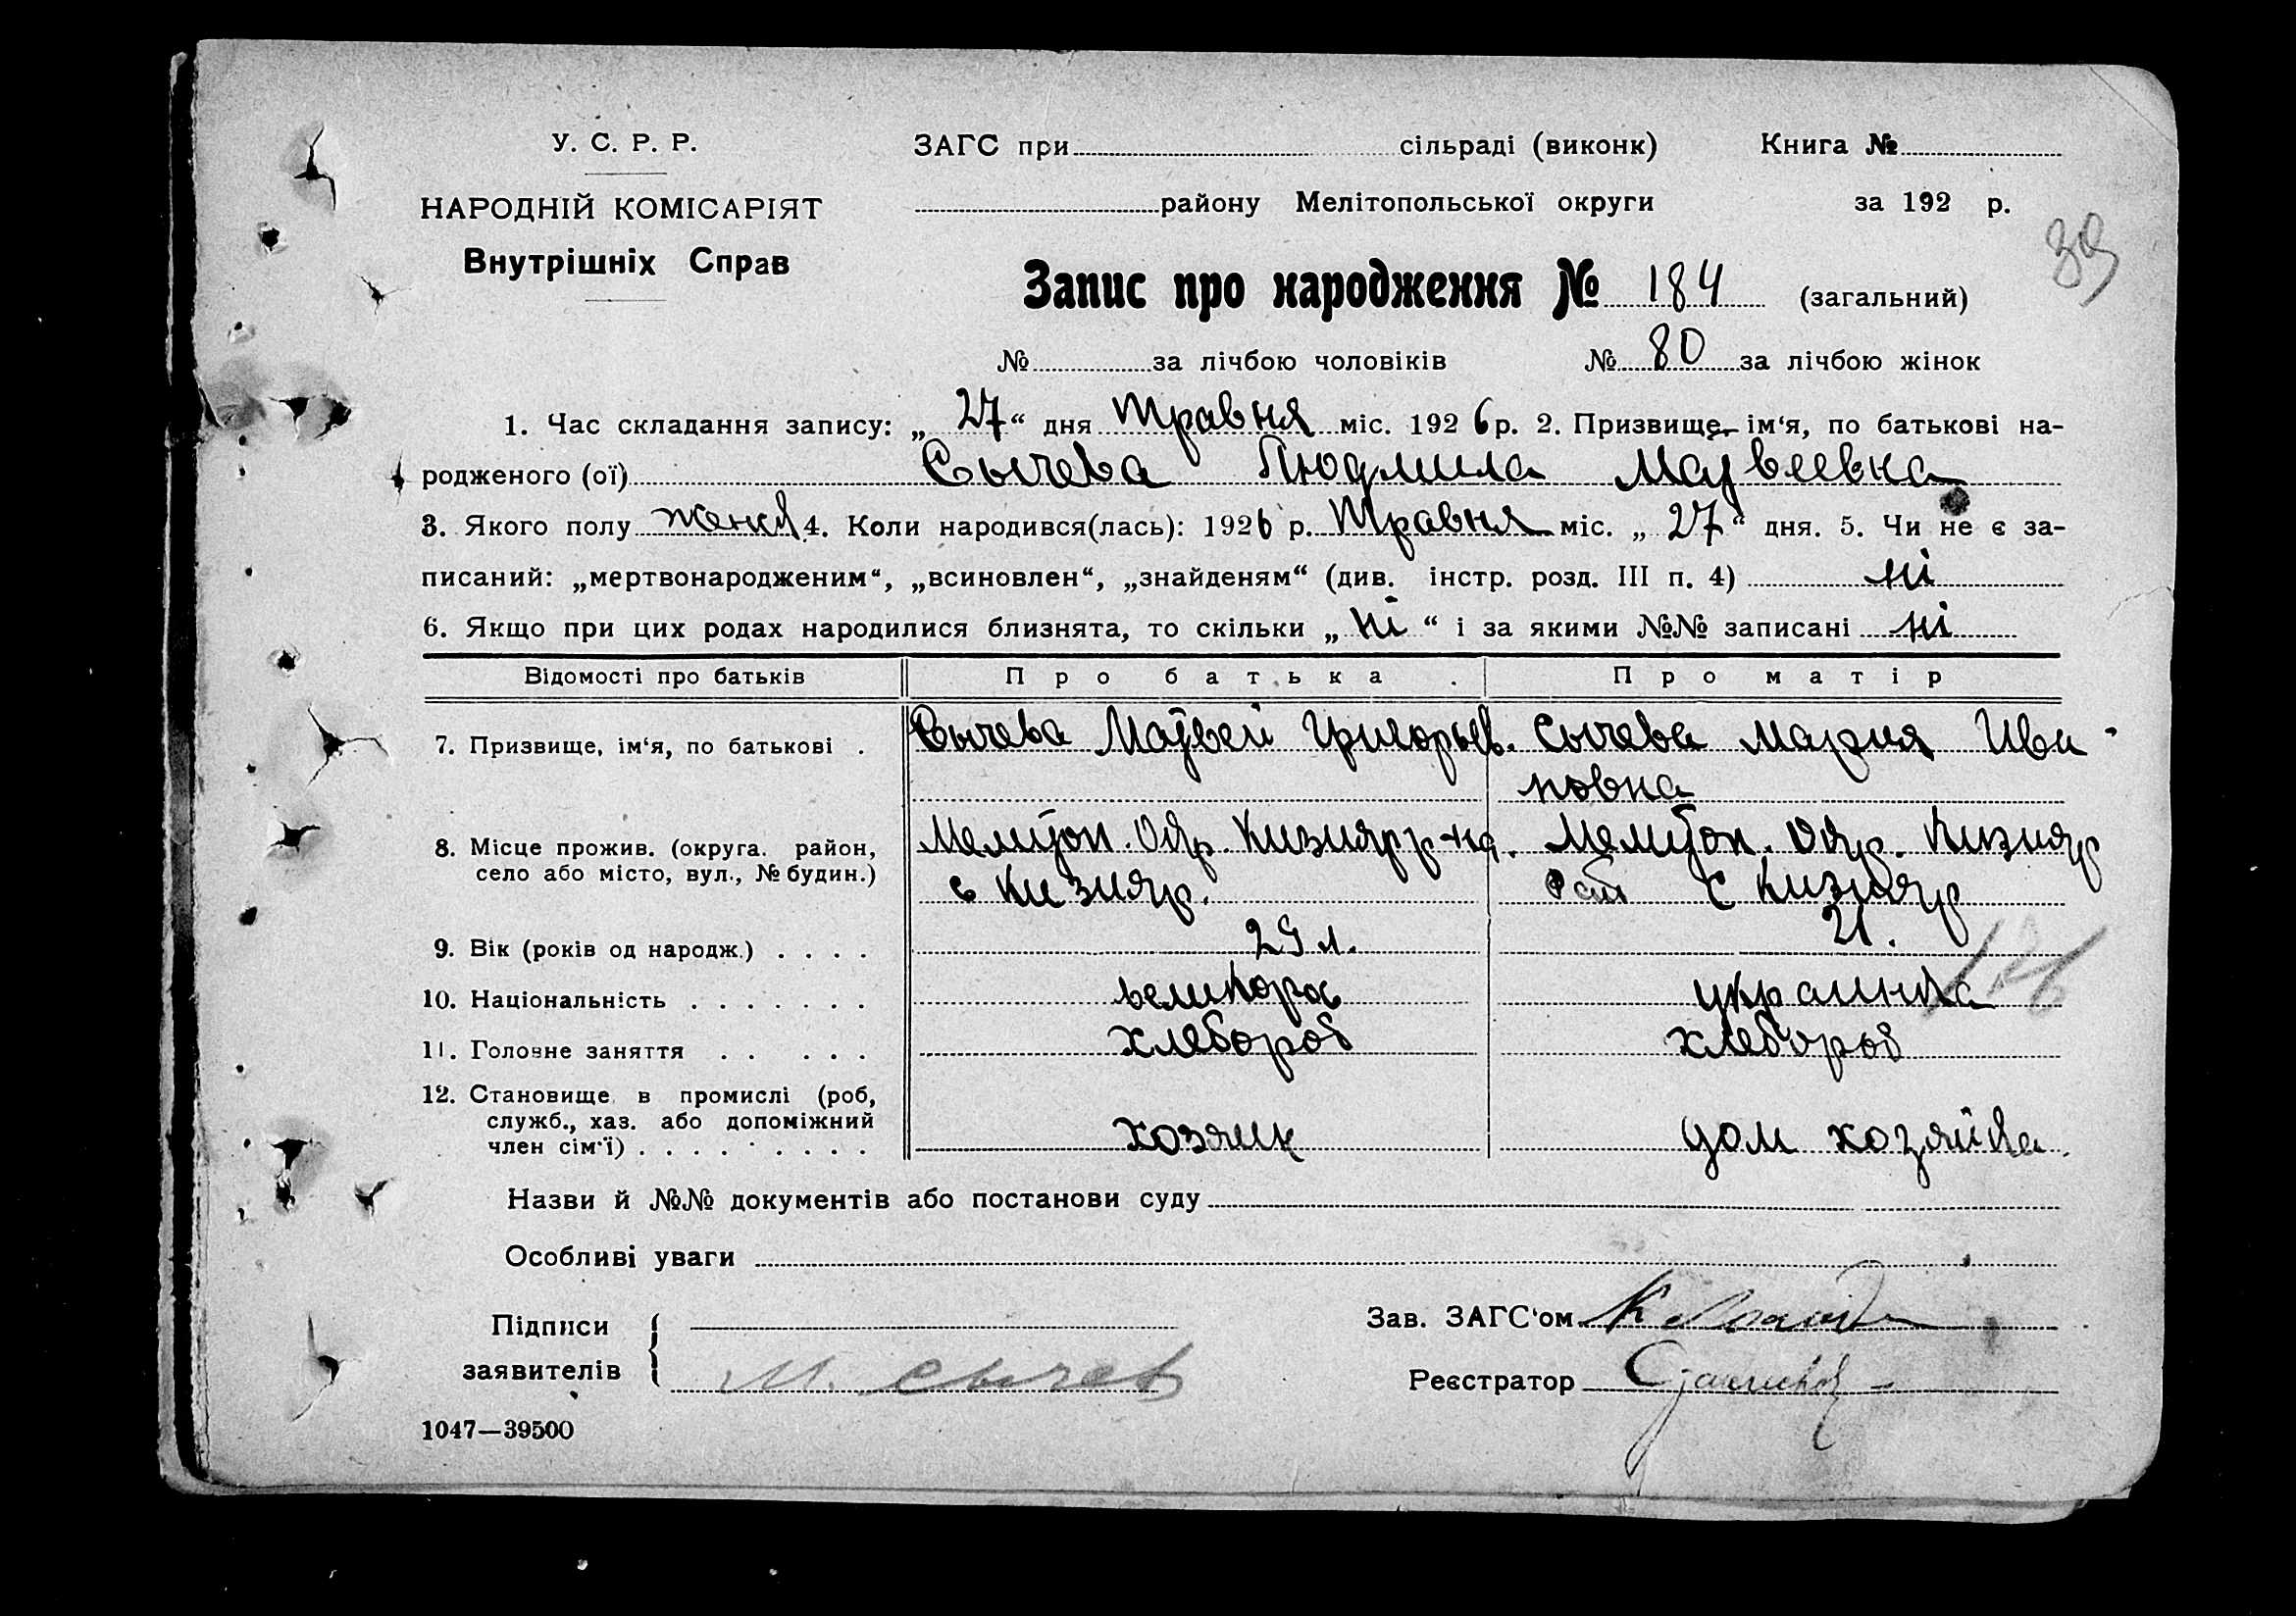 У. С. Р. Р.
НАРОДНІЙ КОМІСАРІЯТ
Внутрішніх Справ
ЗАГС при сільраді (виконк) Книга №
району Мелітопольської округи за 192 р.
39
Запис про народження № 184 (загальний)
№ за лічбою чоловіків № 80 за лічбою жінок
1. Час складання запису: „27“ дня Травня міс. 1926 р. 2. Призвище, ім‘я, по батькові на-
родженого (ої) Сычева Людмила Матвеевна
3. Якого полу 4. Коли народився(лась): 1926 р. Травня міс. „27“ дня. 5. Чи не є за-
писаний: „мертвонародженим“, „всиновлен“, „знайденям“ (див. інстр. розд. III п. 4) ні
6. Якщо при цих родах народилися близнята, то скільки „ні“ і за якими №№ записані ні
Відомості про батьків Про батька Про матір
7. Призвище, ім‘я, по батькові . Сычева Матвей Григорьев. Сычева Мария Ива-
новна
8. Місце прожив. (округа. район, Мелитоп. Окр. Кизияр р-на. Мелитоп. Окр. Кизияр
село або місто, вул., № будин.) с Кизияр. с Кизияр
9. Вік (років од народж.) . . . . 29 л. 21.
10. Національність . . . . . . . великорос украинка
11. Головне заняття . . . . . хлебороб хлебороб
12. Становище в промислі (роб,
служб., хаз. або допоміжний
член сім‘ї) . . . . . . . . . хозяин дом хозяйка.
Назви й №№ документів або постанови суду
Особливі уваги
Підписи
заявителів М. Сычев
Зав. ЗАГС‘ом
Реєстратор
1047—39500